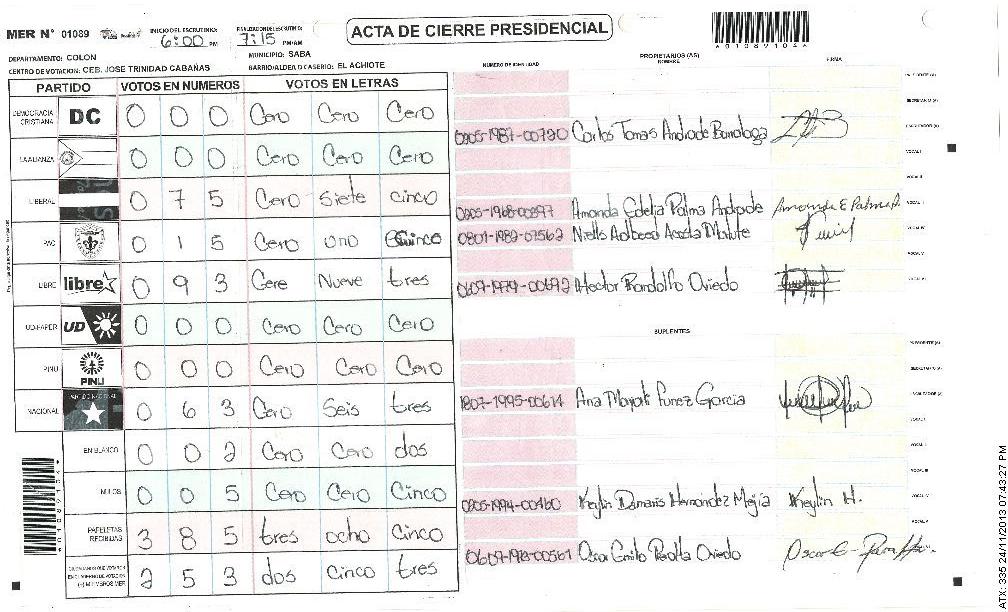 MER N° 01089
INICIO DEL ESCRUTINIO: 6:00 PM
FINALIZACION ESCRUTINIO: 7:15 PM/AM
ACTA DE CIERRE PRESIDENCIAL
*01089104*
DEPARTAMENTO: COLON
MUNICIPIO: SABA
CENTRO DE VOTACION: CEB. JOSE TRINIDAD CABAÑAS
BARRIO/ALDEA O CASERIO: EL ACHIOTE
PARTIDO VOTOS EN NUMEROS VOTOS EN LETRAS
DEMOCRACIA CRISTIANA DC 0 0 0 Cero Cero Cero
LA ALIANZA 0 0 0 Cero Cero Cero
LIBERAL 0 7 5 Cero Siete cinco
PAC 0 1 5 Cero uno Cinco
LIBRE libre 0 9 3 Cere Nueve tres
UD-FAPER UD 0 0 0 Cero Cero Cero
PINU PINU 0 0 0 Cero Cero Cero
NACIONAL 0 6 3 Cero Seis tres
EN BLANCO 0 0 2 Cero Cero dos
NULOS 0 0 5 Cero Cero Cinco
PAPELETAS RECIBIDAS 3 8 5 tres ocho Cinco
CIUDADANOS QUE VOTARON EN CUADERNO DE VOTACION (+) MIEMBROS MER 2 5 3 dos Cinco tres
NUMERO DE IDENTIDAD PROPIETARIOS (AS) NOMBRE FIRMA
PRESIDENTE (A)
SECRETARIO (A)
0205-1987-00720 Carlos Tomas Andrade ESCRUTADOR (A)
VOCAL I
VOCAL II
0205-1968-00297 Amanda Edelia Palma Andrade Amanda E Palma A.
0801-1982-07562 Acosta VOCAL IV
VOCAL V
0209-1979-00692 Hector Randolfo Oviedo
SUPLENTES
PRESIDENTE (A)
SECRETARIO (A)
1807-1995-00614 Ana Funez Garcia ESCRUTADOR (A)
VOCAL I
VOCAL II
VOCAL III
0205-1994-00460 Keylin Damaris Hernandez Mejia Keylin H. VOCAL IV
VOCAL V
Oscar Emilio Peralta Oviedo Oscar E-
ATX: 335 24/11/2013 07:43:27 PM